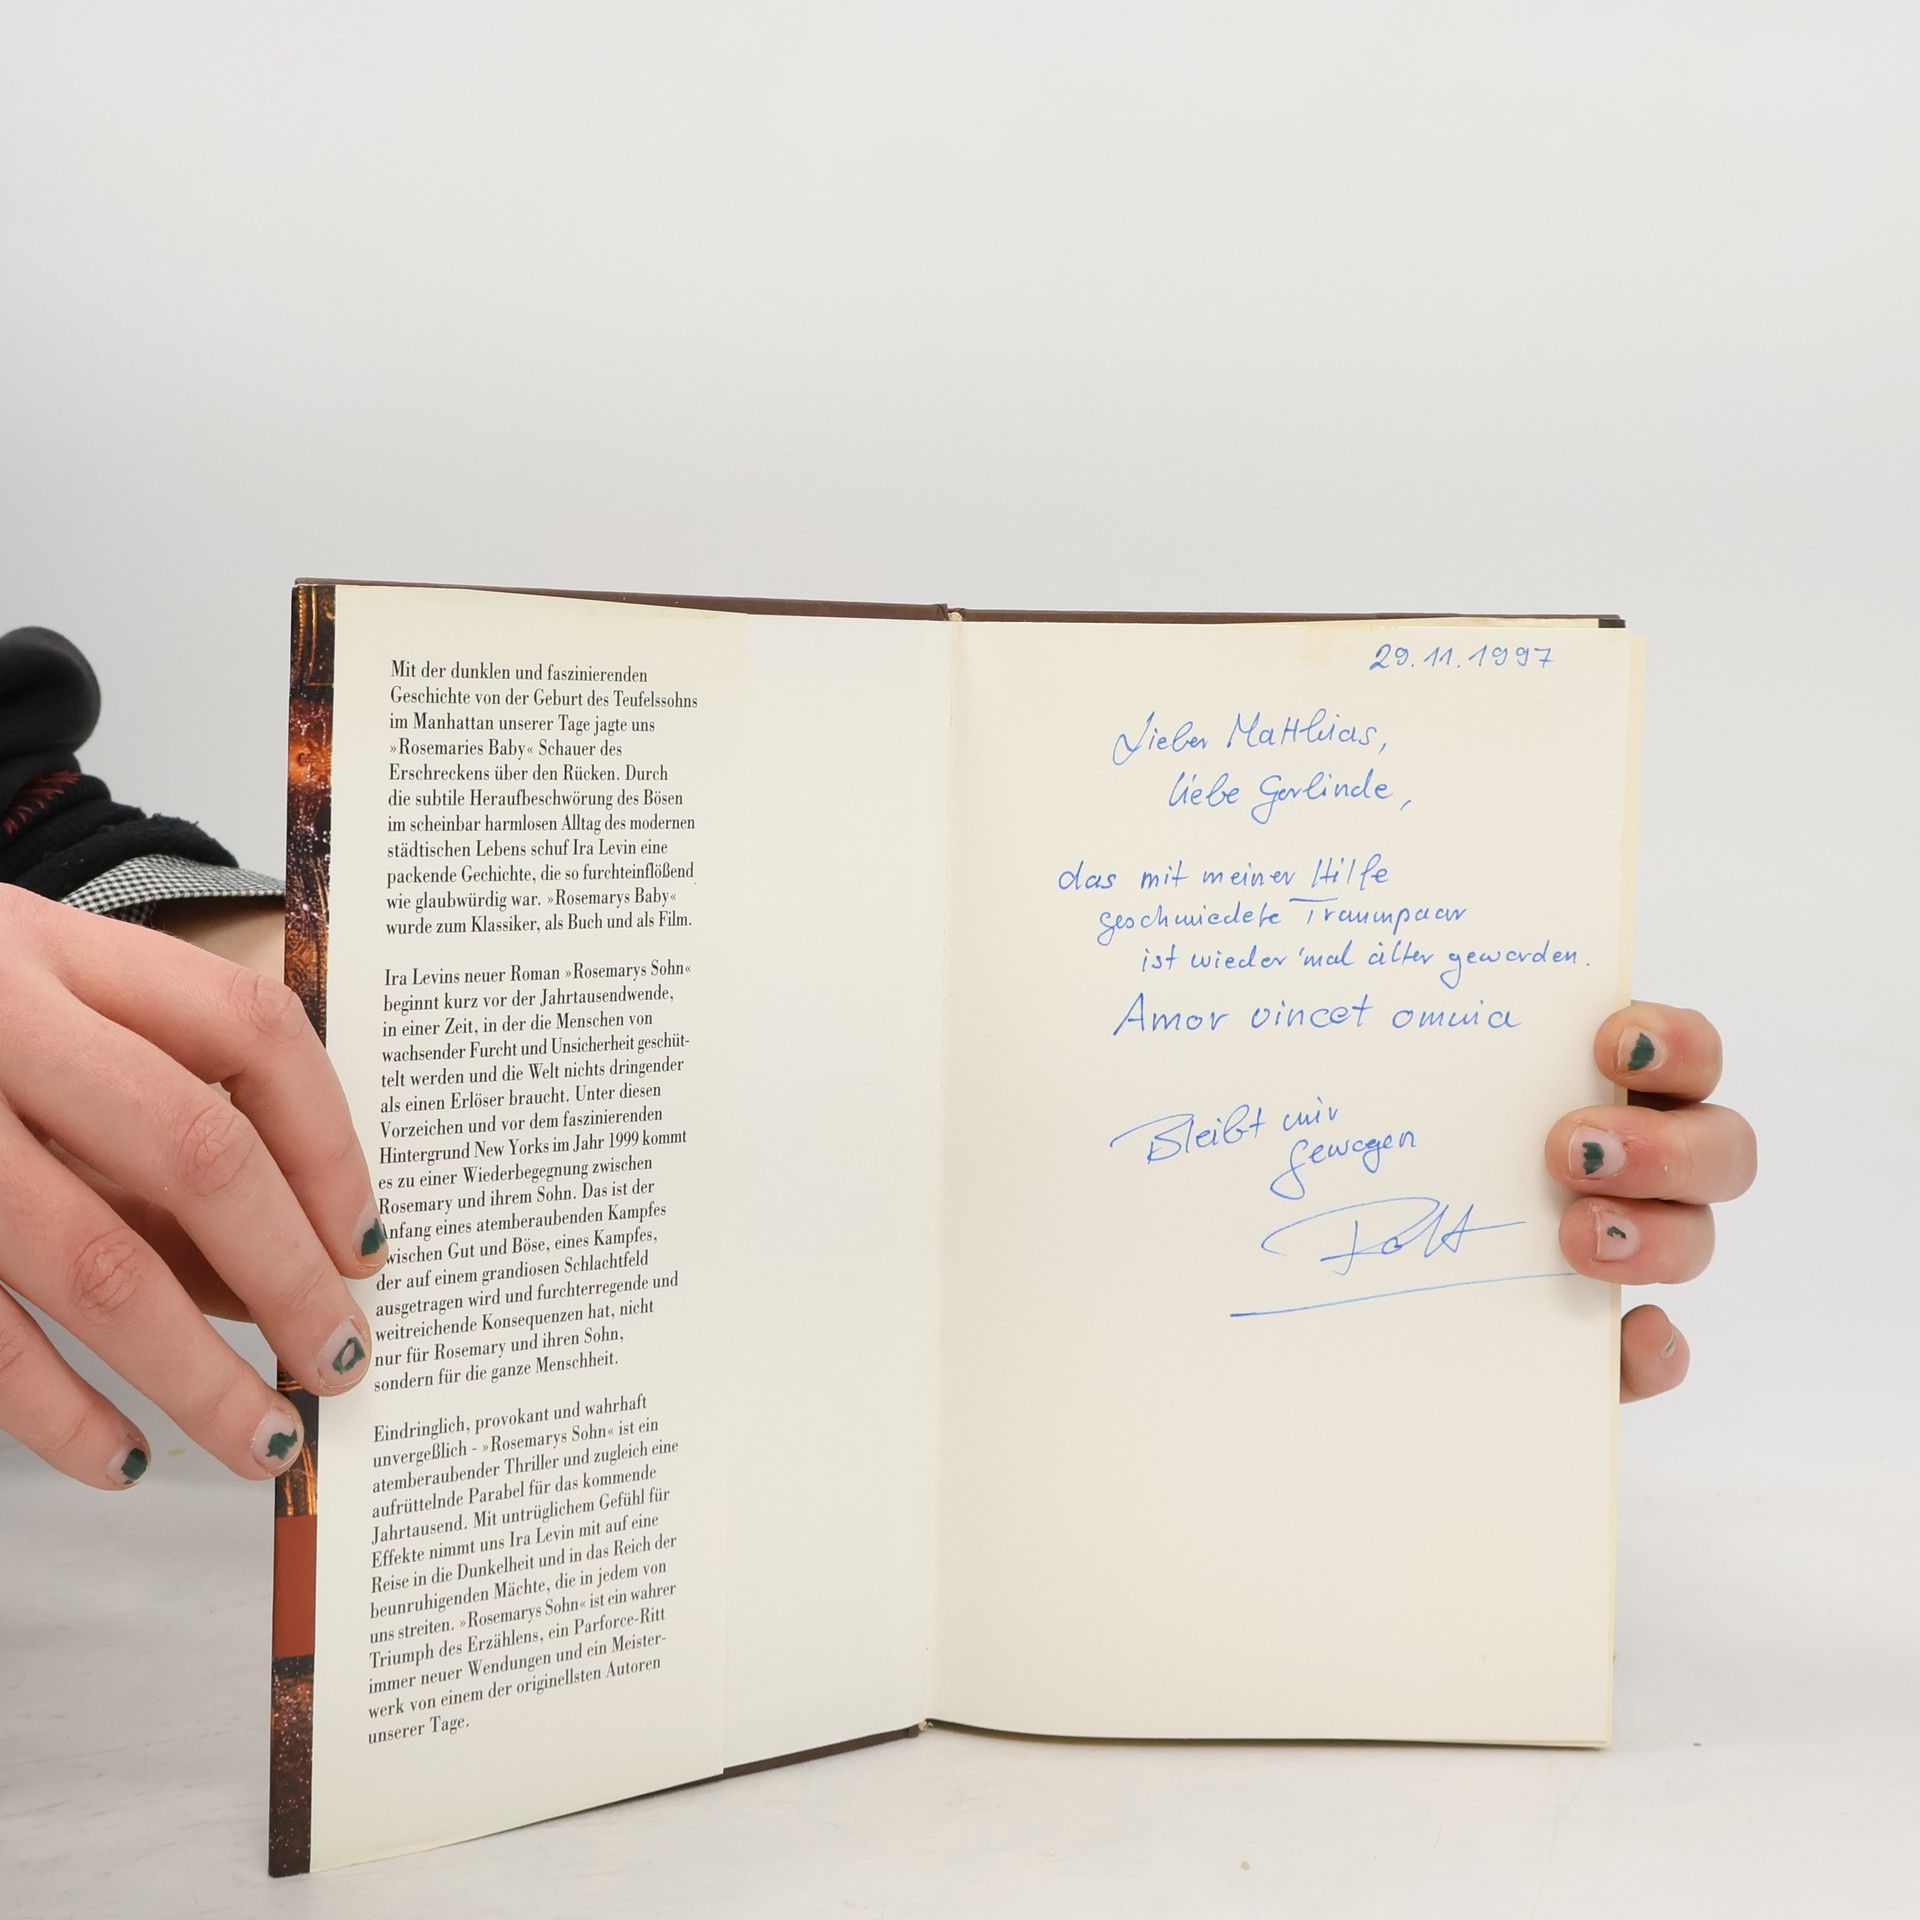 Mit der dunklen und faszinierenden
Geschichte von der Geburt des Teufelssohns
im Manhattan unserer Tage jagte uns
»Rosemaries Baby« Schauer des
Erschreckens über den Rücken. Durch
die subtile Heraufbeschwörung des Bösen
im scheinbar harmlosen Alltag des modernen
städtischen Lebens schuf Ira Levin eine
packende Gechichte, die so furchteinflößend
wie glaubwürdig war. »Rosemarys Baby«
wurde zum Klassiker, als Buch und als Film.
Ira Levins neuer Roman »Rosemarys Sohn«
beginnt kurz vor der Jahrtausendwende,
in einer Zeit, in der die Menschen von
wachsender Furcht und Unsicherheit geschüt-
telt werden und die Welt nichts dringender
als einen Erlöser braucht. Unter diesen
Vorzeichen und vor dem faszinierenden
Hintergrund New Yorks im Jahr 1999 kommt
es zu einer Wiederbegegnung zwischen
Rosemary und ihrem Sohn. Das ist der
Anfang eines atemberaubenden Kampfes
zwischen Gut und Böse, eines Kampfes,
der auf einem grandiosen Schlachtfeld
ausgetragen wird und furchterregende und
weitreichende Konsequenzen hat, nicht
nur für Rosemary und ihren Sohn,
sondern für die ganze Menschheit.
Eindringlich, provokant und wahrhaft
unvergeßlich - »Rosemarys Sohn« ist ein
atemberaubender Thriller und zugleich eine
aufrüttelnde Parabel für das kommende
Jahrtausend. Mit untrüglichem Gefühl für
Effekte nimmt uns Ira Levin mit auf eine
Reise in die Dunkelheit und in das Reich der
beunruhigenden Mächte, die in jedem von
uns streiten. »Rosemarys Sohn« ist ein wahrer
Triumph des Erzählens, ein Parforce-Ritt
immer neuer Wendungen und ein Meister-
werk von einem der originellsten Autoren
unserer Tage.
29.11.1997
Lieber Matthias,
liebe Gerlinde,
das mit meiner Hilfe
geschmiedete Traumpaar
ist wieder 'mal älter geworden.
Amor vincet omnia
Bleibt mir
gewogen
Rolf